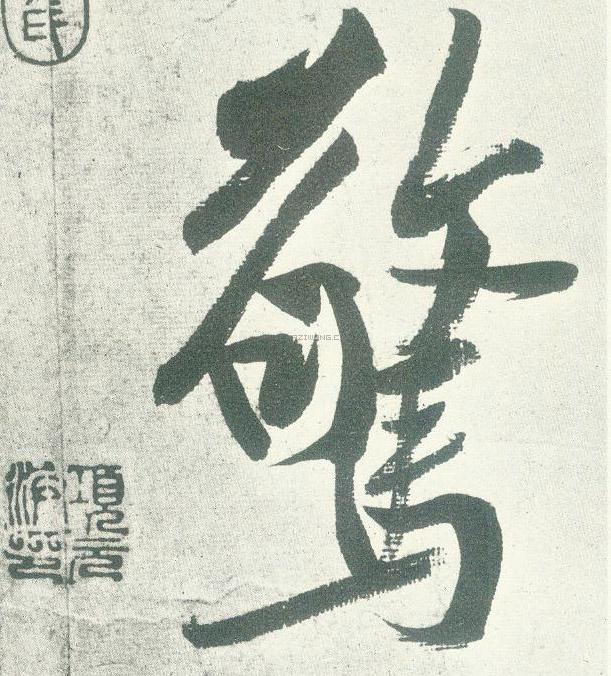 驚
項元
汴印